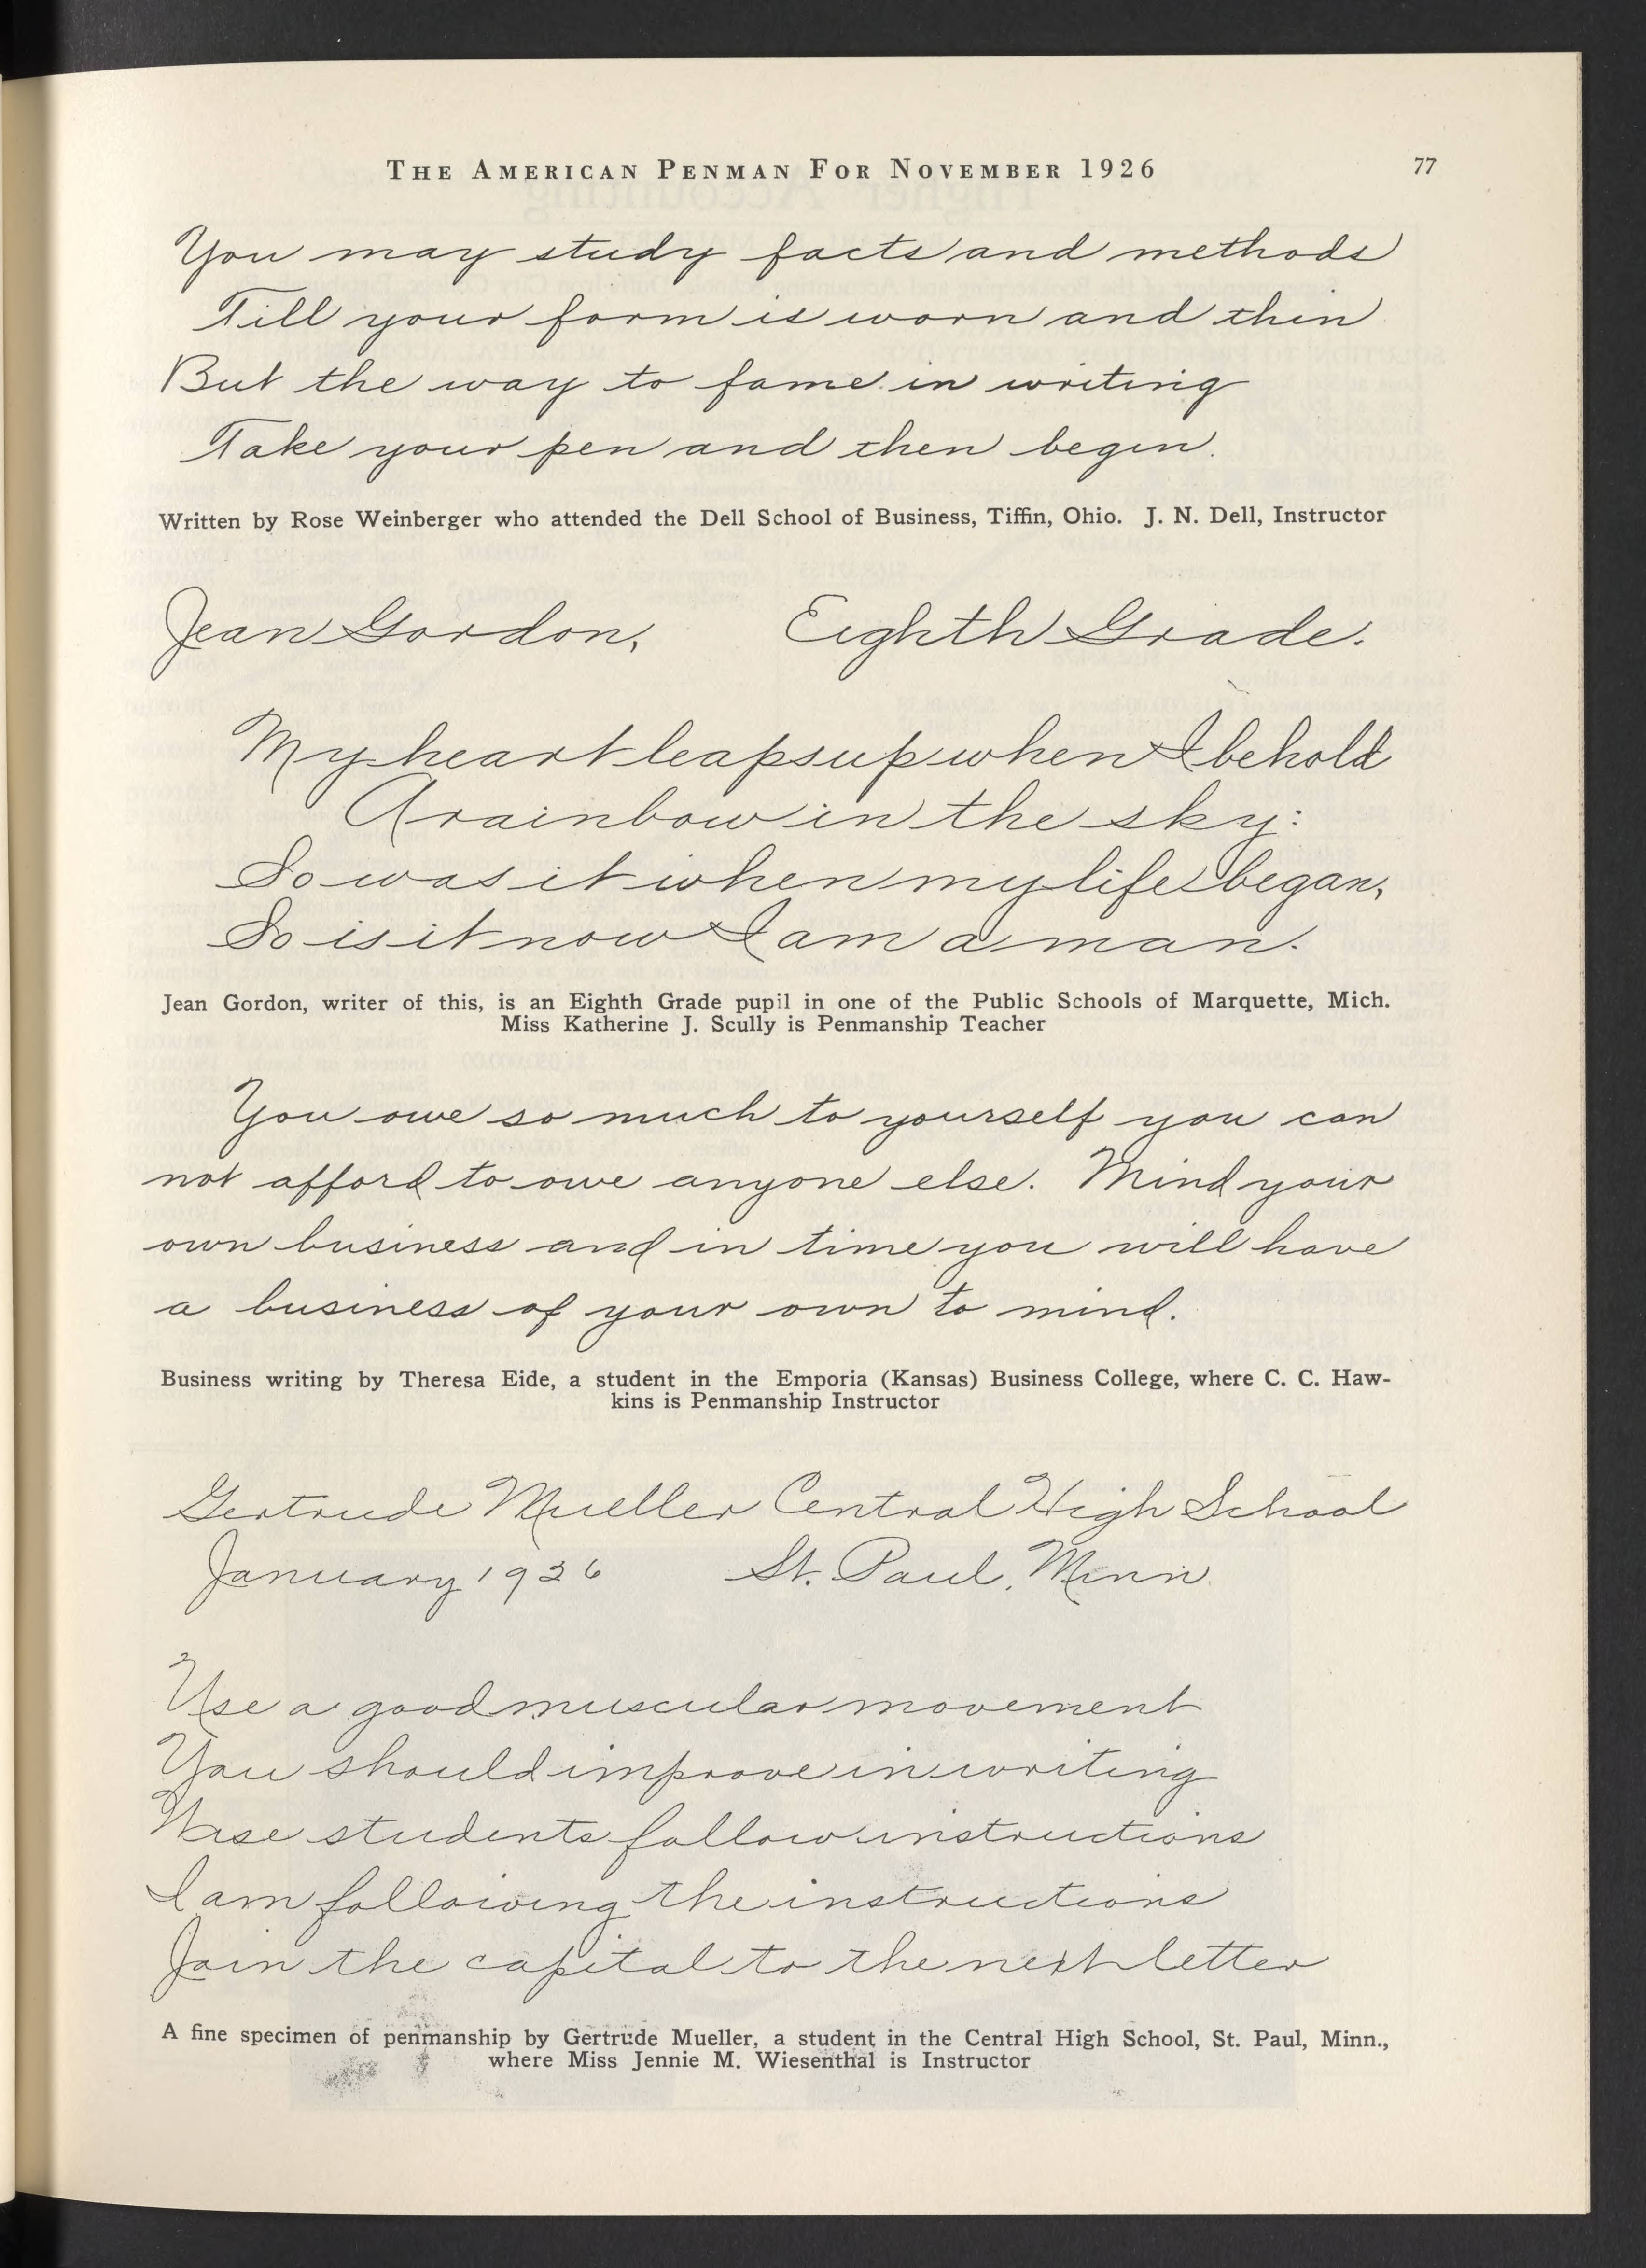 THE AMERICAN PENMAN FOR NOVEMBER 1926 77
You may study facts and methods
Till your form is worn and thin
But the way to fame in writing
Take your pen and then begin.
Written by Rose Weinberger who attended the Dell School of Business, Tiffin, Ohio. J. N. Dell, Instructor
Jean Gordon, Eighth Grade.
My heart leaps up when I behold
A rainbow in the sky:
So was it when my life began,
So is it now I am a man.
Jean Gordon, writer of this, is an Eighth Grade pupil in one of the Public Schools of Marquette, Mich.
Miss Katherine J. Scully is Penmanship Teacher
You owe so much to yourself you can
not afford to owe anyone else. Mind your
own business and in time you will have
a business of your own to mind.
Business writing by Theresa Eide, a student in the Emporia (Kansas) Business College, where C. C. Haw-
kins is Penmanship Instructor
Gertrude Mueller Central High School
January 1926 St. Paul, Minn.
Use a good muscular movement
You should improve in writing
Wise students follow instructions
I am following the instructions
Join the capital to the next letter
A fine specimen of penmanship by Gertrude Mueller, a student in the Central High School, St. Paul, Minn.,
where Miss Jennie M. Wiesenthal is Instructor